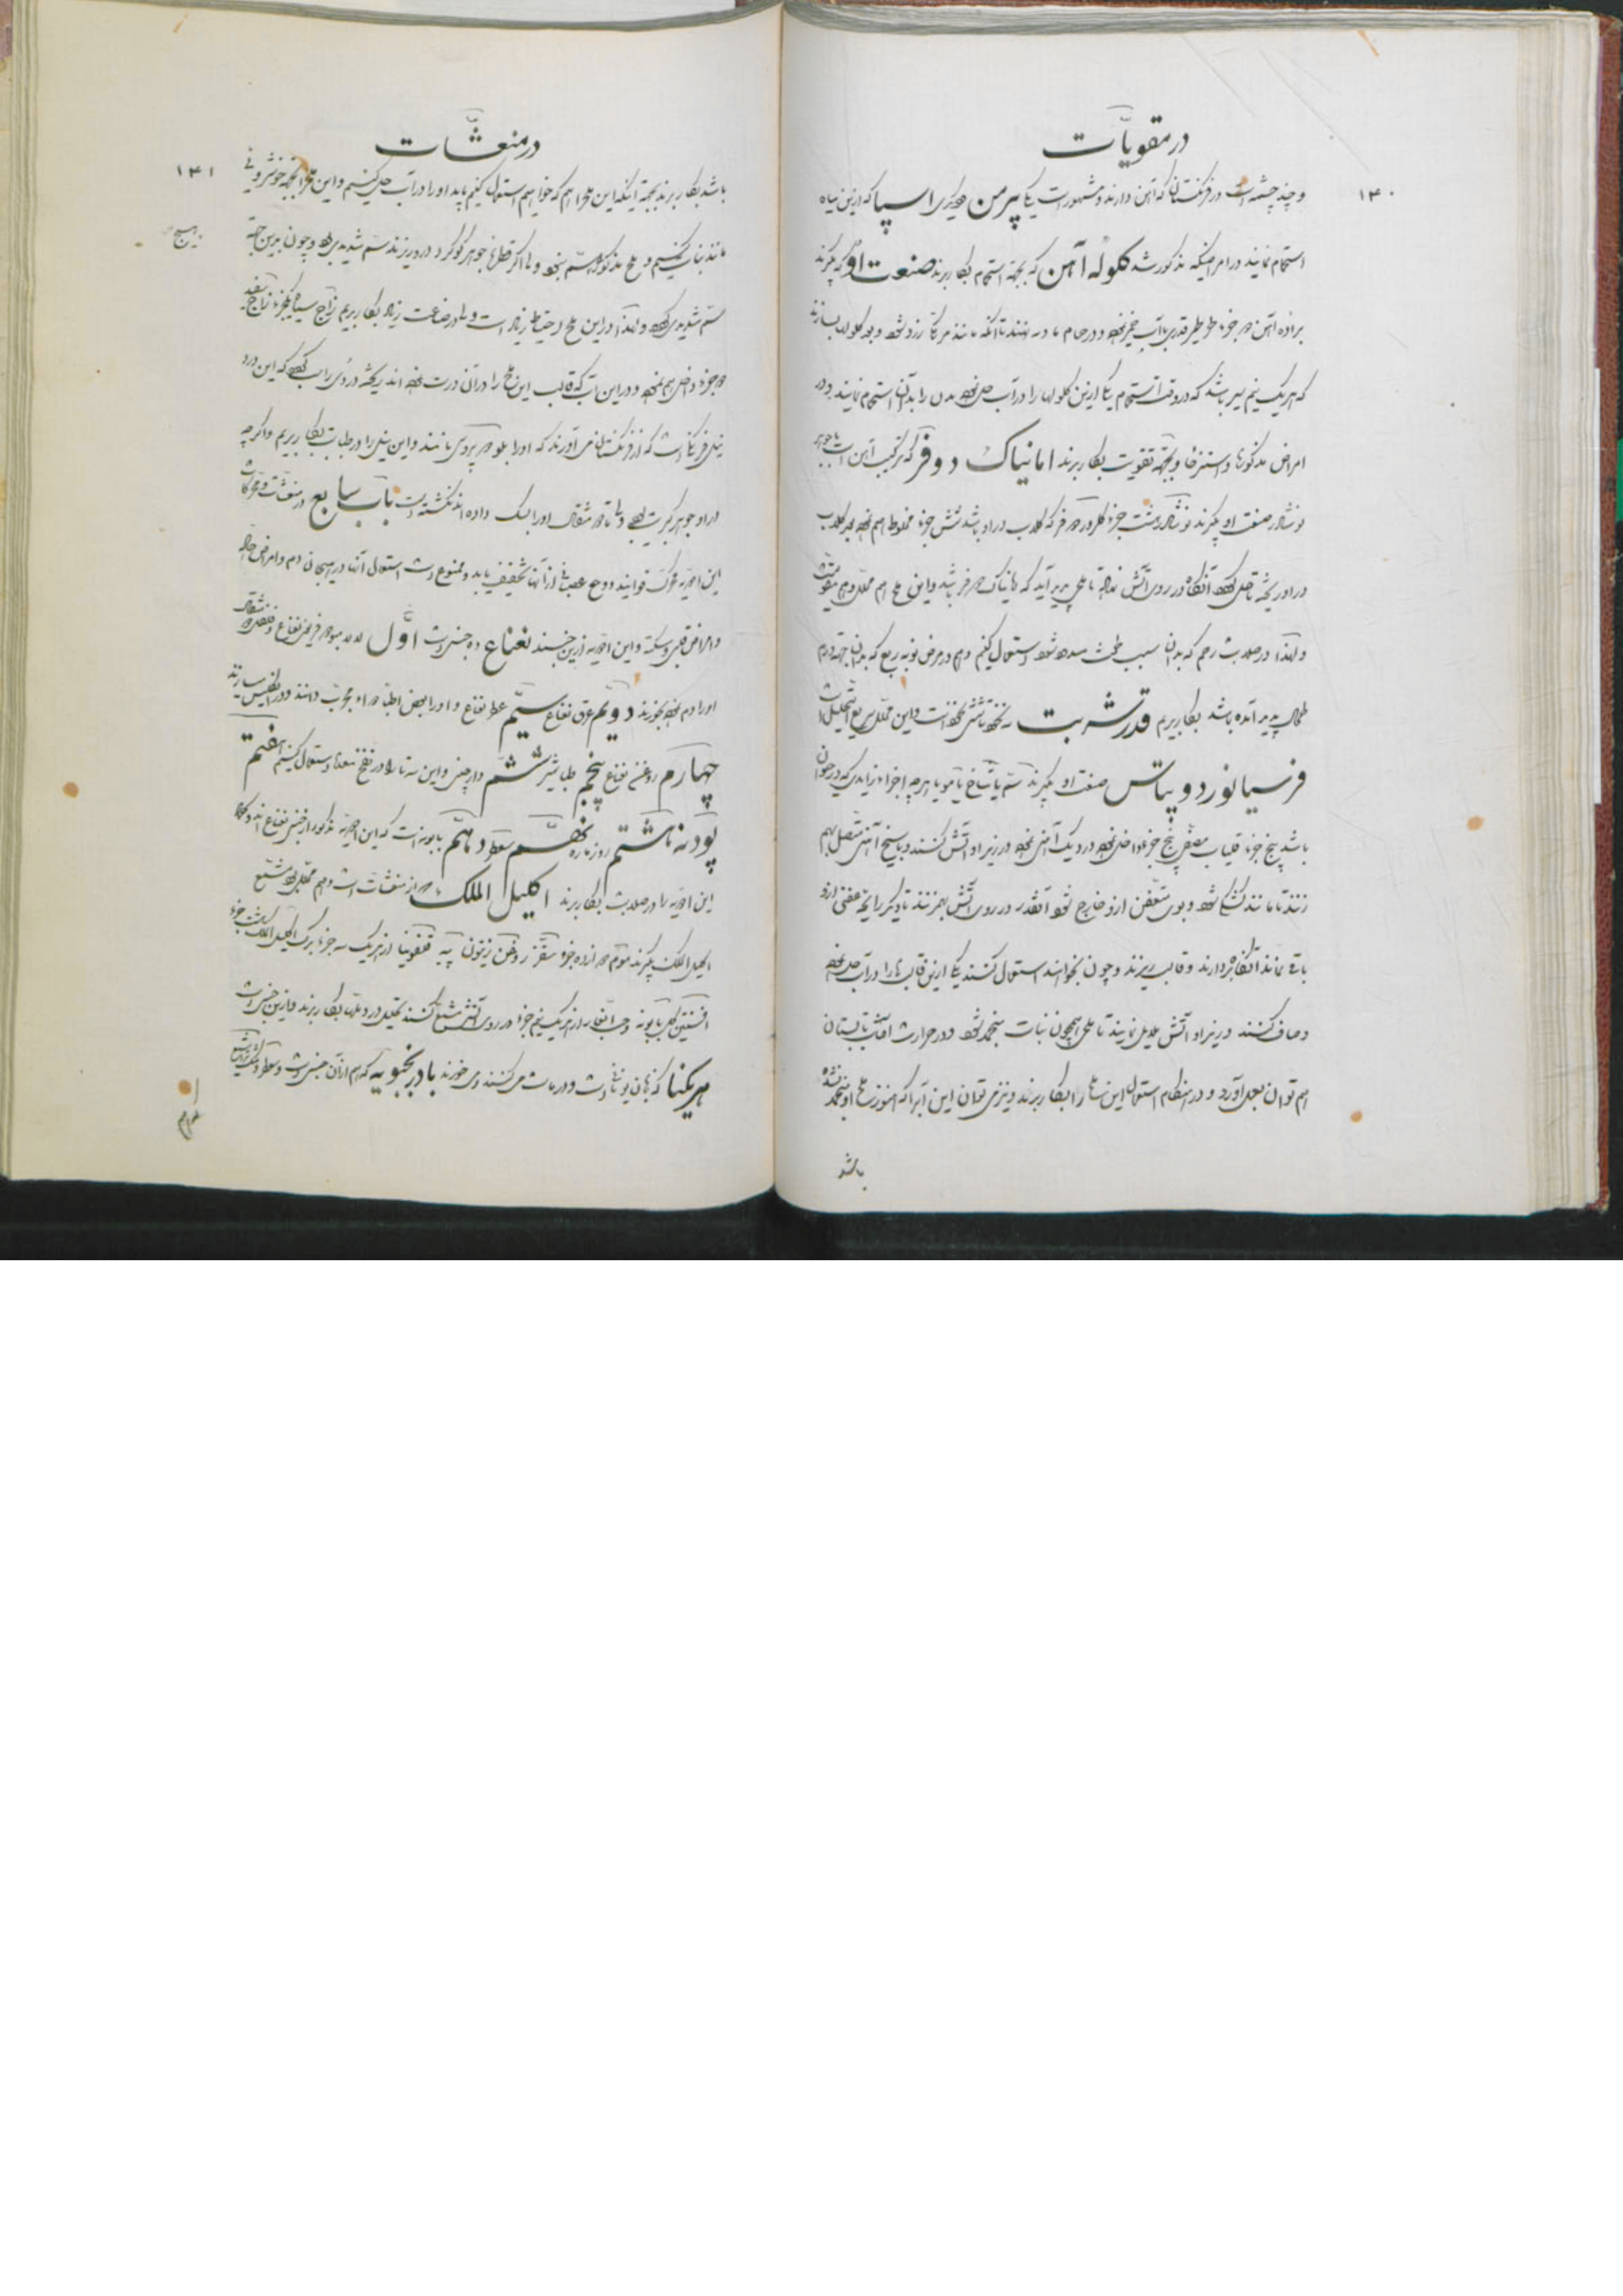 در مقویات
۱۴۰
و چند چشمه است در فرنگستان که آهن دارند و مشهور است یکی پیرمن دیگری اسپا که ازین میاه
استحمام نمایند در امراضیکه مذکور شد گلوله آهن که بجهة استحمام بکار برند صنعت او که بگیرند
براده آهن دو جزء طرطیر قدری با آب خمیر نموده و در حمام بنهند تا آنکه مانند مرکب زرد شود و بعد گلوله‌ها بسازند
که هر یک نیم سیر باشد که در وقت استحمام یکی ازین گلوله‌ها را در آب حل نموده بدن را بدان استحمام نمایند و در
امراض مذکوره و استرخا و بجهة تقویت بکار برند امانیاک دو فر که ترکیب آهن است با جوهر
نوشادر صنعت او بگیرند نوشادر هشت جزء
در او ریخته تا حل شود آنگاه در روی آتش نهاده تا ملحی پدید آید که امانیاک دو فر باشد و این ملح هم محلل و هم مقویست
و لهذا در صلابت رحم که بدان سبب طمث مسدود شود استعمال کنیم و هم در مرض نوبه ربع که بدان جهة ورم
طحال پدید آمده باشد بکار بریم قدر شربت نخود تا شش نخود است و این محلل سریع التحلیل است
فرسیانورد و پتاس صنعت او بگیرند سم یا شاخ یا مو یا هر چه اجزاء زایدی که در حیوان
باشد پنج جزء قلیاب مصفی پنج جزء داخل نموده در دیک آهنی نموده در زیر او آتش کنند و با سیخ آهنی متصل بهم
زنند تا مانند کشک شود و بوی متعفن ازو خارج شود آنقدر در روی آتش بهم زنند تا دیگر رایحه عفنی ازو
باقی نماند آنگاه بردارند و قالب ریزند و چون بخواهند استعمال کنند یکی ازین قالب‌ها را در آب حل نموده
و صاف کنند در زیر او آتش ملایم نمایند تا ملحی همچون نبات منجمد شود و در حرارت آفتاب تابستان
هم توان بعمل آورد و در هنگام استعمال این ملح را بکار برند و نیز می توان این آب را که هنوز ملح او منجمد نشده
باشد
در منعشات
۱۴۱
باشد بکار برند بجهة اینکه این ملح را هم که خواهیم استعمال کنیم باید او را در آب حل کنیم و این ملح را بجهة خوشرویی
مانند نبات کنیم و ملح مذکور سم نبود ولی اگر قطره‌ها جوهر گوگرد در او ریزند سم شدیدی بود و چون بدین جهة
سم شدیدی بود و لهذا در این ملح احتیاط زیاد است ولی در صناعت زیاد بکار بریم زاج سیاه یکجزء زاج سفید
دو جزء داخل هم نموده و در این آب که قالب این ملح را در آن درست نموده اند ریخته دردی راسب شود که این درد
نیل فرنگی است که از فرنگستان می آورند که او را بلو دو پروسی نامند و این نیل را در طبابت بکار بریم و اگر چه
در او جوهر کبریت بود ولی تا دو مثقال او را بسک داده اند نکشته است باب سابع در منعشات و محرکات
این ادویه محرک قوایند و وجع عصبانی از آنها تخفیف یابد و ممنوع است استعمال آنها در هیجان دم و امراض حاره
و امراض قلبی و سکته و این ادویه ازین جنسند نعناع ده جنس است اول
او را دم نموده بخورند دویم عرق نعناع سیم عطر نعناع و او را بعض اطبا دواء مجرب دانند و در انگلیس سازند
چهارم روغن نعناع پنجم طباشیر ششم دارچینی و این سه تا را در نفخ معده استعمال کنیم هفتم
پودنه هشتم روزماره نهم سعتر دهم بابونه است که این ادویه مذکور از جنس نعناع اند
این ادویه را در صلابت بکار برند اکلیل الملک از منعشات است و هم محلل بود مشمع
اکلیل الملک بگیرند موم دوازده جزء سقز روغن زیتون پیه قنفونیا از هر یک سه جزء برگ اکلیل الملک هشت جزء
افسنتین گل بابونه و حب الغار از هر یک نیم جزء در روی آتش مشمع کنند بتحلیل در دملها بکار برند و ازین جنس است
مریکنا که بزبان یونانی است و در مات می کنند و می خورند بادرنجبویه که هم از آن جنس است و عطر او